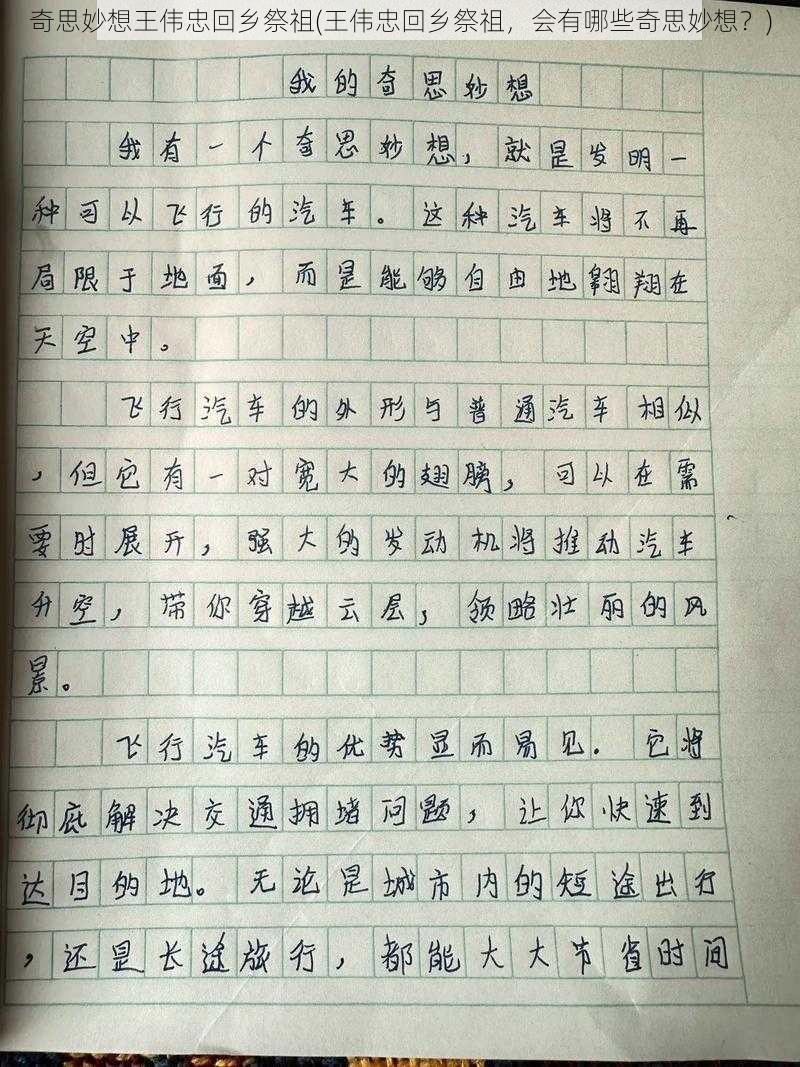 奇思妙想王伟忠回乡祭祖(王伟忠回乡祭祖，会有哪些奇思妙想？)
我的奇思妙想
我有一个奇思妙想，就是发明一
种可以飞行的汽车。这种汽车将不再
局限于地面，而是能够自由地翱翔在
天空中。
飞行汽车的外形与普通汽车相似
，但它有一对宽大的翅膀，可以在需
要时展开，强大的发动机将推动汽车
升空，带你穿越云层，领略壮丽的风
景。
飞行汽车的优势显而易见．它将
彻底解决交通拥堵问题，让你快速到
达目的地。无论是城市内的短途出行
，还是长途旅行，都能大大节省时间